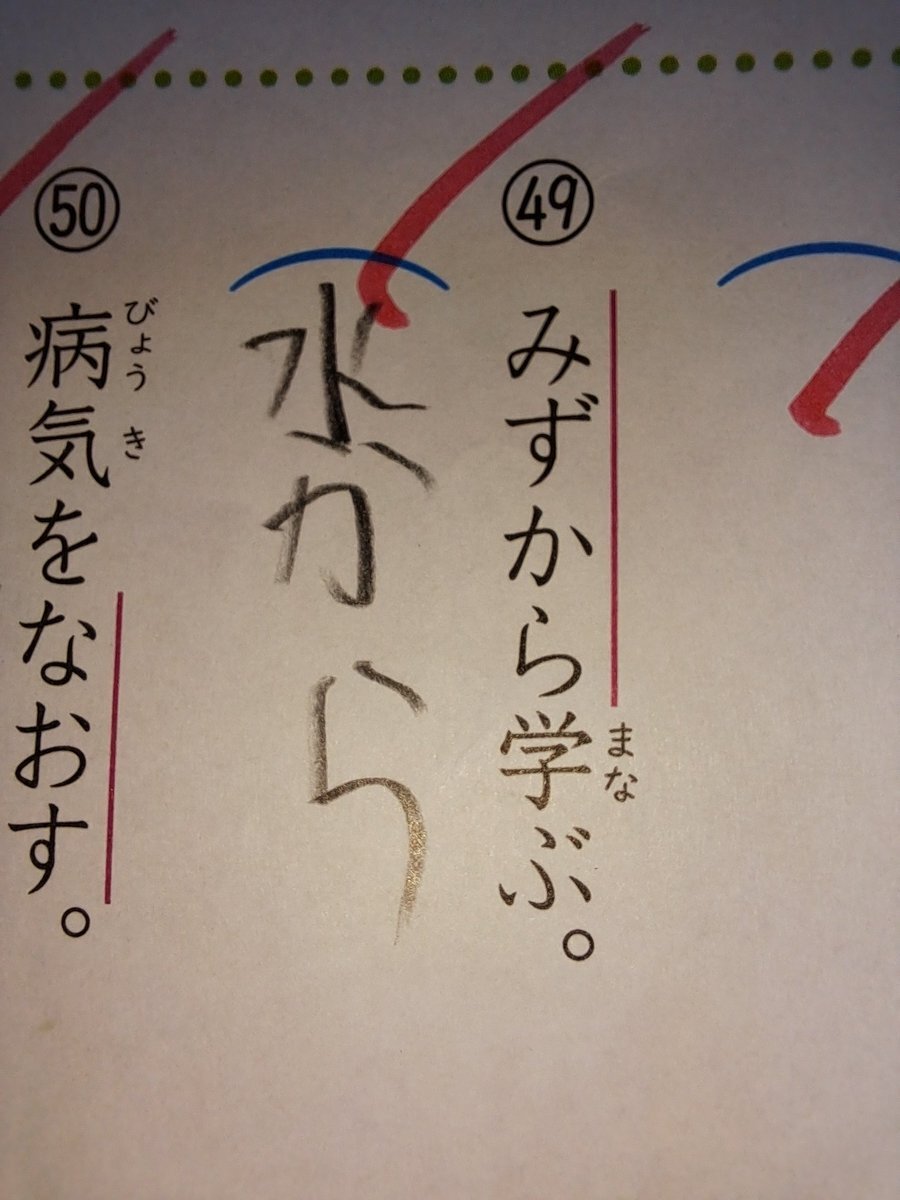 ㊾ みずから学ぶ。
まな
水から
㊿ 病気をなおす。
びょうき